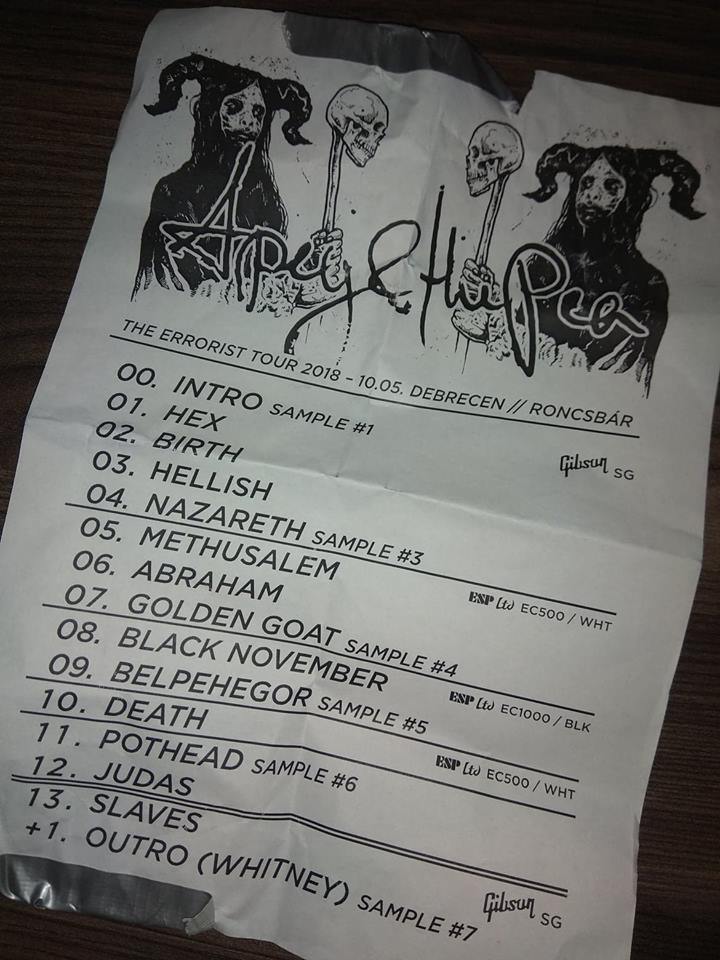 Apey & the Pea
THE ERRORIST TOUR 2018 – 10.05. DEBRECEN // RONCSBÁR
00. INTRO SAMPLE #1
01. HEX
Gibson SG
02. BIRTH
03. HELLISH
04. NAZARETH SAMPLE #3
05. METHUSALEM
ESP Ltd EC500 / WHT
06. ABRAHAM
07. GOLDEN GOAT SAMPLE #4
08. BLACK NOVEMBER
ESP Ltd EC1000 / BLK
09. BELPEHEGOR SAMPLE #5
10. DEATH
ESP Ltd EC500 / WHT
11. POTHEAD SAMPLE #6
12. JUDAS
13. SLAVES
Gibson SG
+1. OUTRO (WHITNEY) SAMPLE #7